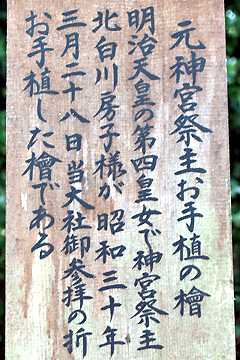 元神宮祭主お手植の檜
明治天皇の第四皇女で神宮祭主
北白川房子様が昭和三十年
三月二十八日当大社御参拝の折
お手植した檜である